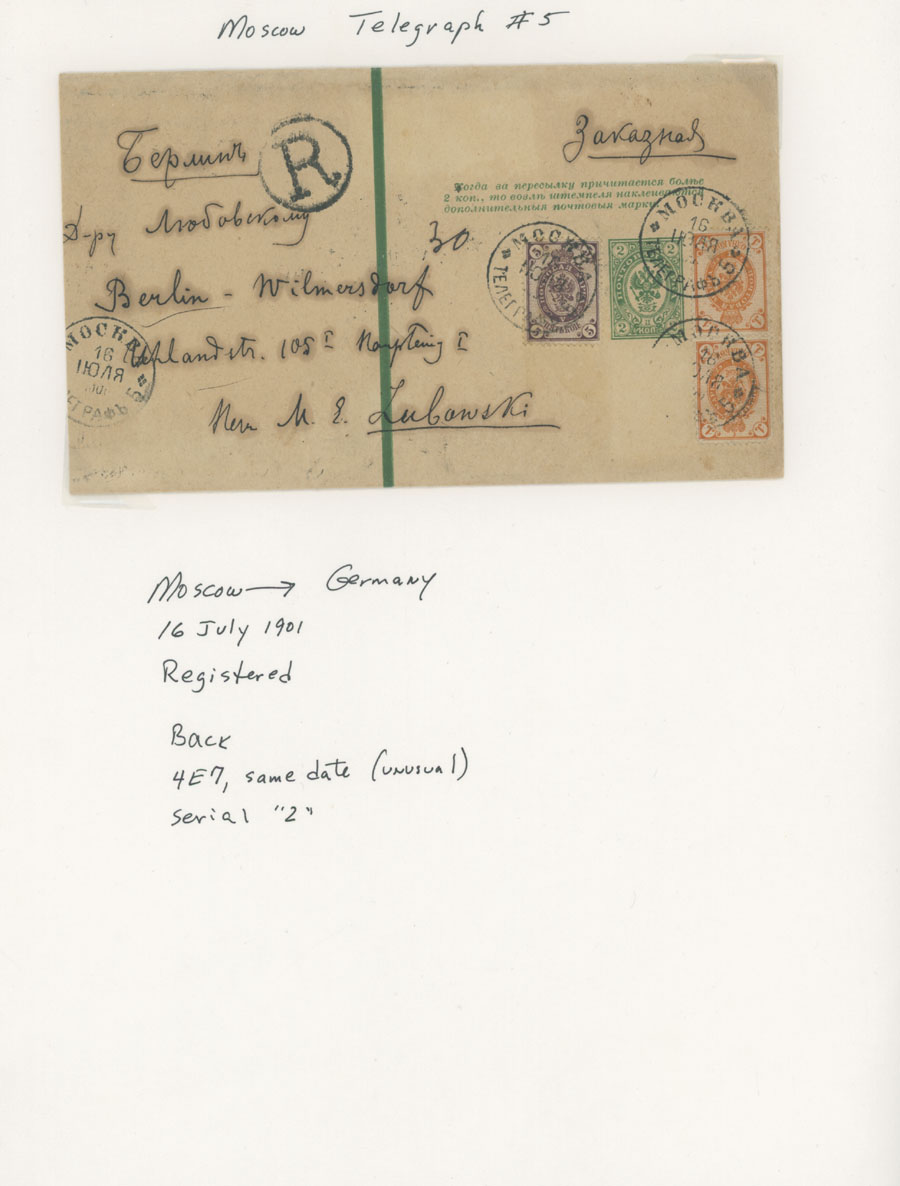 Moscow Telegraph #5
Заказная
Берлинъ
R
Когда за пересылку причитается болѣе
2 коп., то возлѣ штемпеля наклеиваются
дополнительныя почтовыя марки.
Д-ру Любовскому
30
Berlin - Wilmersdorf
Uhlandstr. 105 I
Herrn M. E. Lubowski
МОСКВА
16
ІЮЛЯ
ТЕЛЕГРАФЪ 5
МОСКВА
ТЕЛЕГР
5 5
2 2
2 КОП. 2
МОСКВА
16
ІЮЛЯ
ТЕЛЕГРАФЪ 5
МОСКВА
16
ІЮЛЯ
5
Moscow → Germany
16 July 1901
Registered
Back
4E7, same date (unusual)
serial "2"